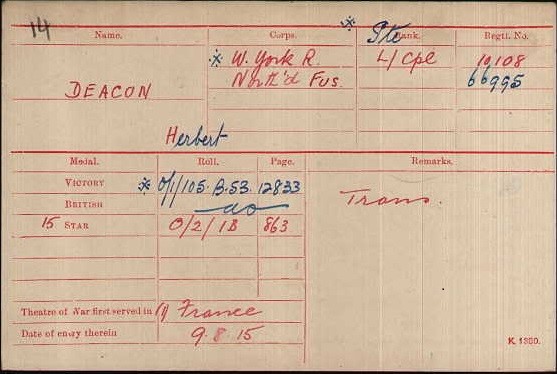 14
Name. Corps. Rank. Regtl. No.
* Pte
DEACON * W. York R. L/Cpl 10108
North'd Fus. 66995
Herbert
Medal. Roll. Page. Remarks.
VICTORY * O/1/105.B.53. 12833
BRITISH do Trans.
15 STAR O/2/1B 863
Theatre of War first served in (1) France
Date of entry therein 9.8.15
K. 1380.